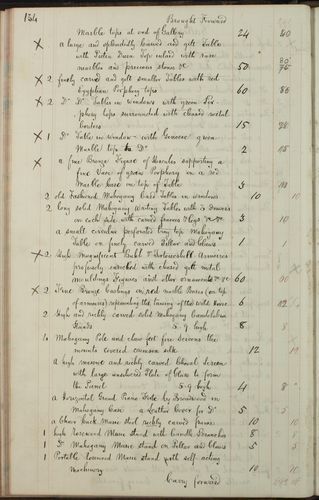 154 Brought Forward
Marble tops at end of Gallery 24 40
x a large and splendidly carved and gilt Table
with Pietra Dura Top inlaid with rare
marbles and precious stones &c 50
x 2 finely carved and gilt smaller Tables with red
Egyptian Porphyry tops 60 86
x 2 Do Do Tables in windows with green
phyry tops surrounded with chased metal
borders 15 28
x 1 Do Table in window with Genoese green
Marble top Do 2 15
x a fine Bronze Figure of Hercules supporting a
fine Vase of green Porphyry on a red
Marble base on top of Table 3
2 old fashioned Mahogany Card Tables in windows 10 10
2 long solid Mahogany Writing Tables with 2 Drawers
on each side with carved frames & legs &c &c 3 10
a small circular perforated tray top Mahogany
Table on finely carved Pillar and claws 1 1
x 2 High Magnificent Buhl & Tortoiseshell Armoires
profusely enriched with chased gilt metal
mouldings Figures and other ornaments &c &c 60
x 2 Fine Bronze Castings on red marble Bases (on top
of armoires) representing the taming of the wild Horse 6
2 High and richly carved solid Mahogany Candelabra
Stands 5.9 high 8
10 Mahogany Pole and claw feet fire Screens the
mounts covered crimson silk 12
a high massive and richly carved Cheval Screen
with large unsilvered Plate of Glass to form
the Panel 5-9 high 4 8
a Horizontal Grand Piano Forte by Broadwood in
Mahogany Case a Leather Cover for Do 5 5
a Chair back Music stool richly carved frame 10 10
1 high Rosewood Music Stand with Candle Branches 8
1 Do Mahogany Music stand on Pillar and claws 5 5
1 Portable Rosewood Music stand with self acting
machinery 10 10
Carry forward